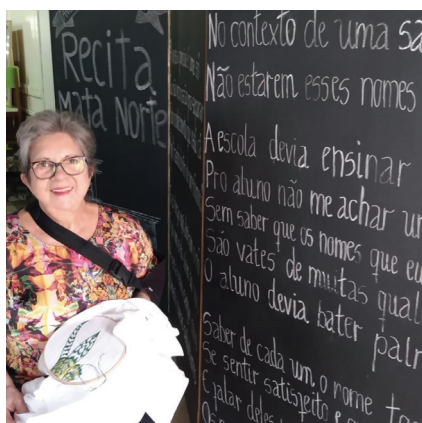 Recita
Mata Norte
No contexto de uma sa
Não estarem esses nomes
A escola devia ensinar
Pro aluno não me achar um
Sem saber que os nomes que eu
São vates de muitas qual
O aluno devia bater palm
Saber de cada um o nome
Se sentir satisfeito e
E falar deles